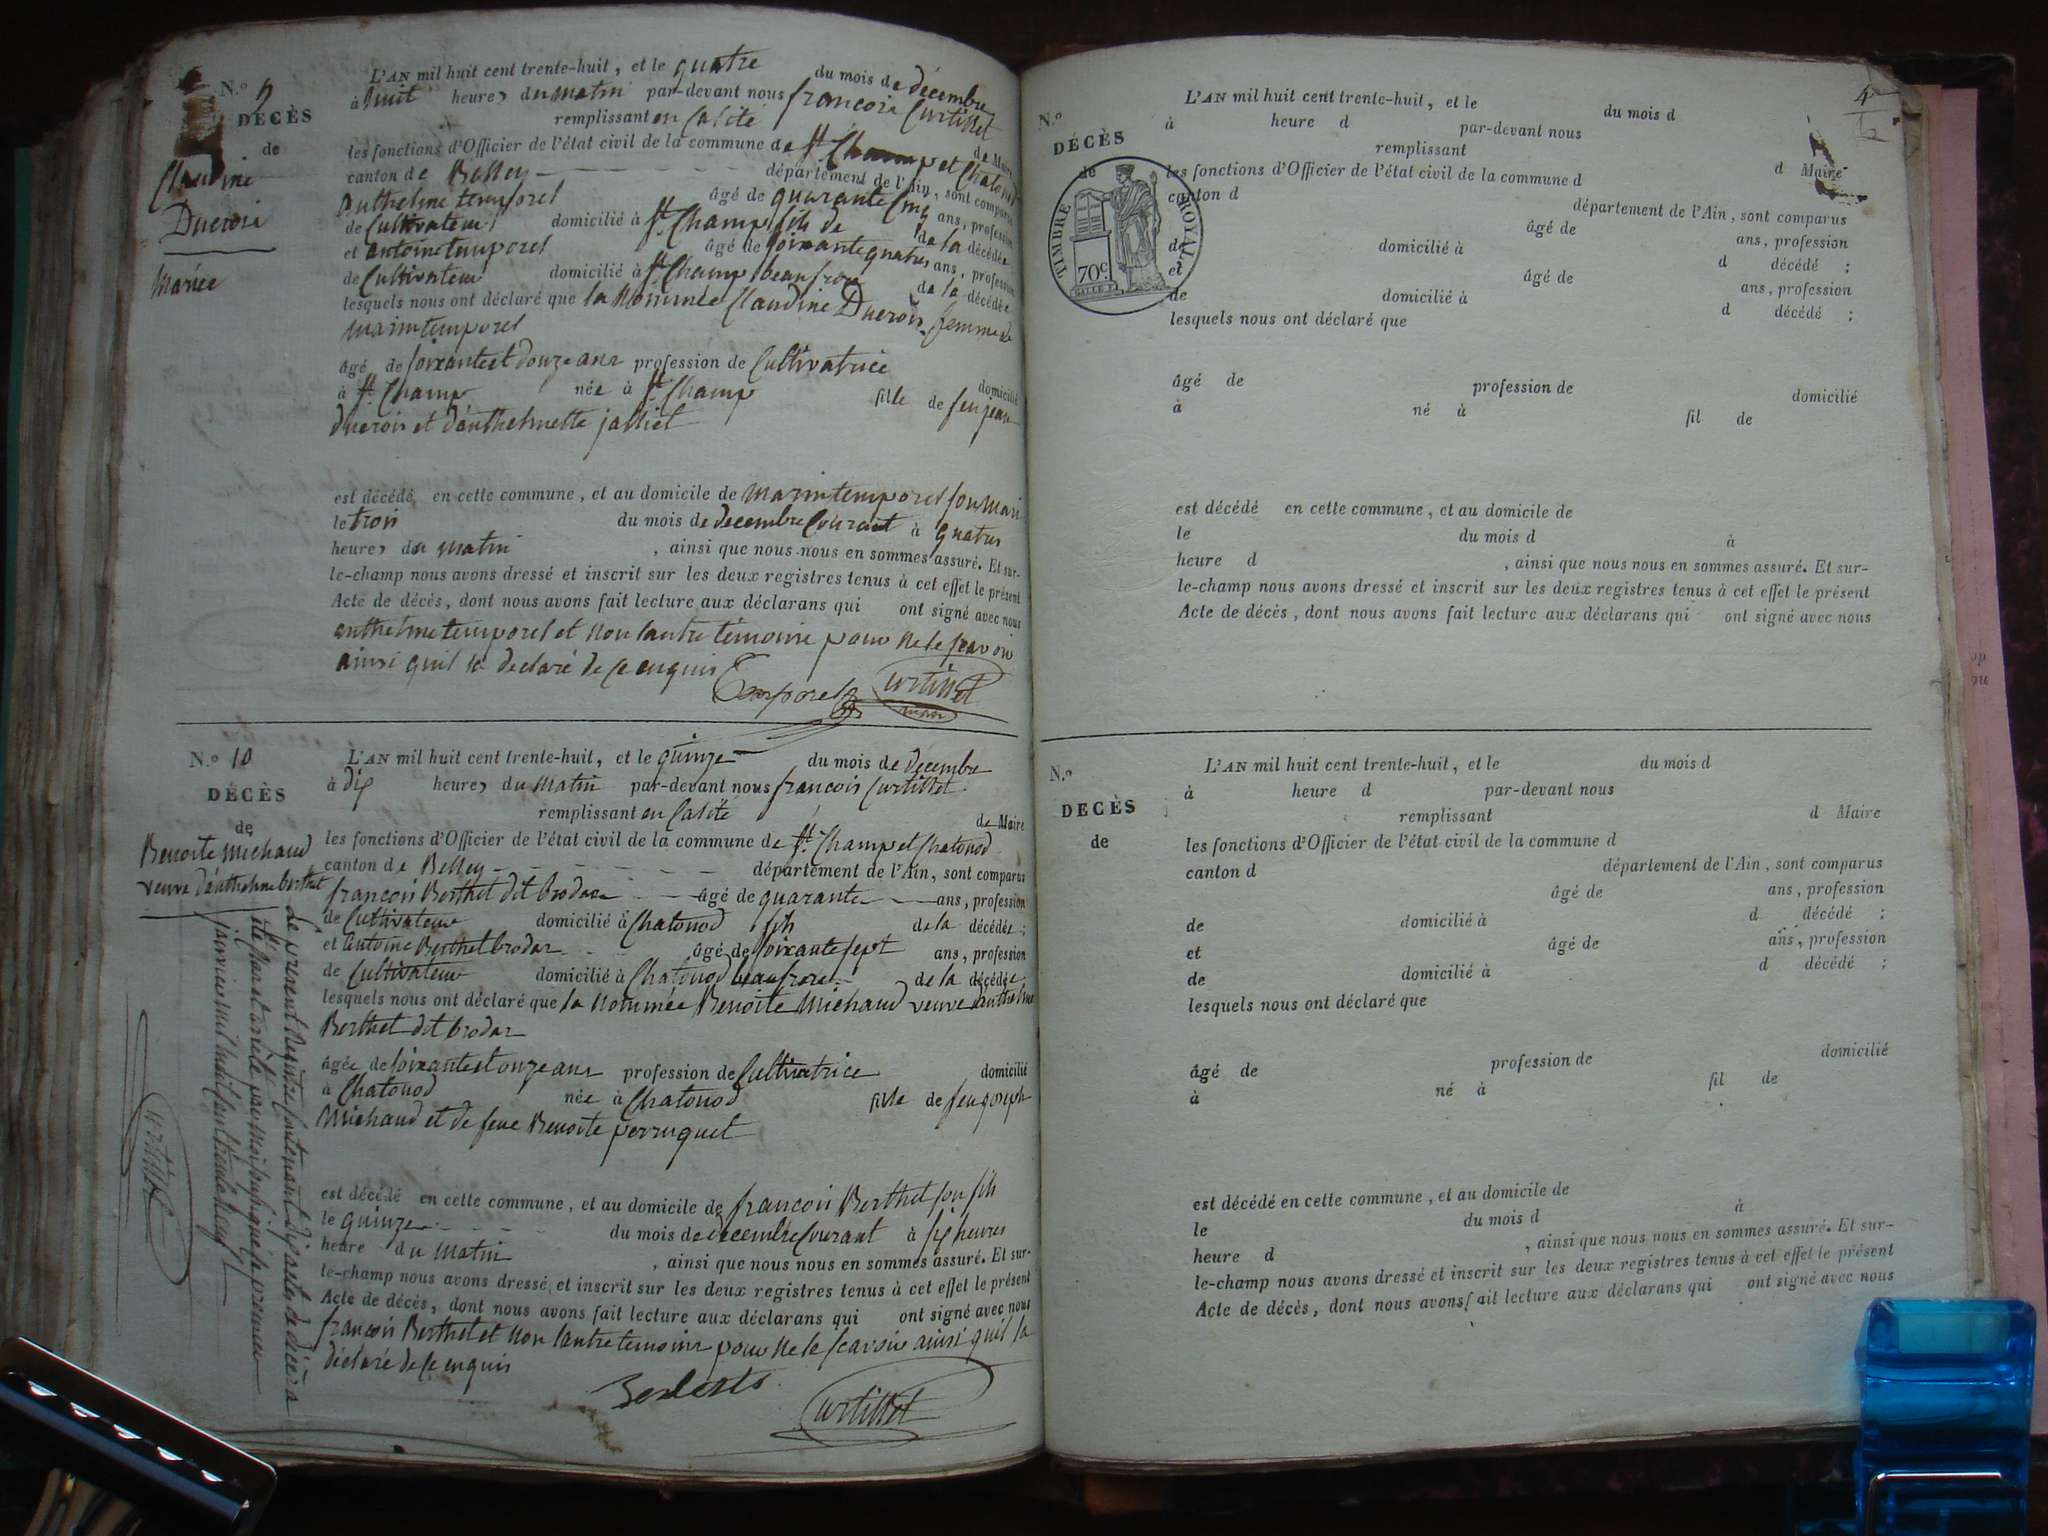 N.° 9
DÉCÈS
de
Claudine
Ducrois
Mariée
L'AN mil huit cent trente-huit, et le quatre du mois de décembre
à huit heures du matin par-devant nous francois Curtillet
remplissant en Calité de Maire
les fonctions d'Officier de l'état civil de la commune de St. Champ et Chatonod
canton de Belley département de l'Ain, sont comparus
Anthelme temporel âgé de quarante Cinq ans, profession
de Cultivateur domicilié à St. Champ fils de de la décédée
et antoine temporel âgé de soixante quatre ans, profession
de Cultivateur domicilié à St. Champ beaufrere de la décédée
lesquels nous ont déclaré que la Nommée Claudine Ducrois femme de
marin temporel
âgé de soixante et douze ans profession de Cultivatrice domicilié
à St. Champ née à St. Champ fille de feu jean
Ducrois et d'anthelmette
est décédé en cette commune, et au domicile de marin temporel son Mari
le trois du mois de decembre Courant à quatre
heures du matin, ainsi que nous nous en sommes assuré. Et sur-
le-champ nous avons dressé et inscrit sur les deux registres tenus à cet effet le présent
Acte de décès, dont nous avons fait lecture aux déclarans qui ont signé avec nous
anthelme temporel et Non lautre témoins pour Ne le scavoir
ainsi quil la declaré de ce enquis
Temporel Curtillet
N.° 10
DÉCÈS
de
Benoite Michaud
veuve d'anthelme berthet
L'AN mil huit cent trente-huit, et le quinze du mois de décembre
à dix heures du matin par-devant nous francois Curtillet
remplissant en Calité de Maire
les fonctions d'Officier de l'état civil de la commune de St. Champ et Chatonod
canton de Belley département de l'Ain, sont comparus
francois Berthet dit brodar âgé de quarante ans, profession
de Cultivateur domicilié à Chatonod fils de la décédée ;
et Antoine Berthet brodar âgé de soixante sept ans, profession
de Cultivateur domicilié à Chatonod beaufrere de la décédée
lesquels nous ont déclaré que la Nommée Benoite Michaud veuve d'anthelme
Berthet dit brodar
âgée de soixante et onze ans profession de Cultivatrice domicilié
à Chatonod née à Chatonod fille de feu joseph
Michaud et de feue Benoite perruquet
est décédé en cette commune, et au domicile de francois Berthet son fils
le quinze du mois de decembre Courant à six heures
heure du matin, ainsi que nous nous en sommes assuré. Et sur-
le-champ nous avons dressé, et inscrit sur les deux registres tenus à cet effet le présent
Acte de décès, dont nous avons fait lecture aux déclarans qui ont signé avec nous
francois Berthet et Non lautre temoins pour Ne le scavoir ainsi quil la
déclaré de ce enquis
Curtillet
Le présent Registre Contenant dix actes de décès a
été Clos et arrêté par Nous soussigné le premier
janvier mil huit cent trente Neuf
Curtillet
4
N.°
DÉCÈS
de
TIMBRE ROYAL
70c
L'AN mil huit cent trente-huit, et le du mois d
à heure d par-devant nous
remplissant d Maire
les fonctions d'Officier de l'état civil de la commune d
canton d département de l'Ain, sont comparus
âgé de ans, profession
de domicilié à d décédé ;
et âgé de ans, profession
de domicilié à d décédé ;
lesquels nous ont déclaré que
âgé de profession de domicilié
à né à fil de
est décédé en cette commune, et au domicile de
le du mois d à
heure d , ainsi que nous nous en sommes assuré. Et sur-
le-champ nous avons dressé et inscrit sur les deux registres tenus à cet effet le présent
Acte de décès, dont nous avons fait lecture aux déclarans qui ont signé avec nous
N.°
DÉCÈS
de
L'AN mil huit cent trente-huit, et le du mois d
à heure d par-devant nous
remplissant d Maire
les fonctions d'Officier de l'état civil de la commune d
canton d département de l'Ain, sont comparus
âgé de ans, profession
de domicilié à d décédé ;
et âgé de ans, profession
de domicilié à d décédé ;
lesquels nous ont déclaré que
âgé de profession de domicilié
à né à fil de
est décédé en cette commune, et au domicile de
le du mois d à
heure d , ainsi que nous nous en sommes assuré. Et sur-
le-champ nous avons dressé et inscrit sur les deux registres tenus à cet effet le présent
Acte de décès, dont nous avons fait lecture aux déclarans qui ont signé avec nous